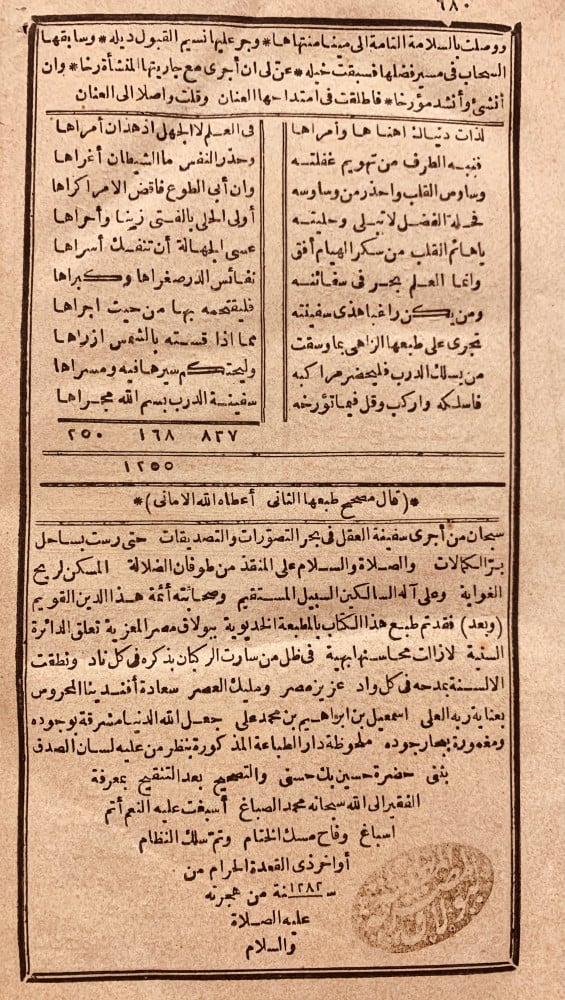 ٦٨٠
ووصلت بالسلامة التامة الى مينا منتهاها * وجر عليها نسيم القبول ذيله * وسابقها
السحاب فى مسير فضلها فسبقت خيله * عنّ لى ان أجرى مع جاريتها المنشأة رخا * وان
أنشئ وأنشد مؤرخا * فاطلقت فى امتداحها العنان وقلت واصلا الى العنان
لذات دنياك اهناها وأمراها فى العلم لا الجهل اذ هذان أمراها
فنبه الطرف من تهويم غفلته وحذر النفس ما الشيطان أغراها
وساوس القلب واحذر من وساوسه وان أبى الطوع فاقض الامر اكراها
فحلة الفضل لا تبلى وحليته أولى الحلى بالفتى زينا وأحراها
ياهائم القلب من سكر الهيام أفق عسى الجهالة أن تنفك أسراها
وانما العلم بحر فى سفائنه نفائس الدر صغراها وكبراها
ومن يكن راغبا هذى سفينته فليقتحمه بها من حيث اجراها
تجرى على طبعها الزاهى بما وسقت مما اذا قسته بالشمس ازراها
من يسلك الدرب فليحضر مراكبه وليحتكم سيرها فيه ومسراها
فاسلكه واركب وقل فيما تؤرخه سفينة الدرب بسم الله مجراها
٨٣٧ ١٦٨ ٢٥٠
١٢٥٥
*(قال مصحح طبعها الثانى أعطاه الله الامانى)*
سبحان من أجرى سفينة العقل فى بحر التصورات والتصديقات حتى رست بساحل
بر الكمالات والصلاة والسلام على المنقذ من طوفان الضلالة المسكن لريح
الغواية وعلى آله السالكين السبيل المستقيم وصحابته أئمة هذا الدين القويم
(وبعد) فقد تم طبع هذا الكتاب بالمطبعة الخديوية ببولاق مصر المعزية تعلق الدائرة
السنية لازالت محاسنها بهية فى ظل من سارت الركبان بذكره فى كل ناد ونطقت
الالسنة بمدحه فى كل واد عزيز مصر ومليك العصر سعادة أفندينا المحروس
بعناية ربه العلى اسمعيل بن ابراهيم بن محمد على جعل الله الدنيا مشرقة بوجوده
ومغمورة ببحار جوده ملحوظة دار الطباعة المذكورة بنظر من عليه لسان الصدق
يثنى حضرة حسين بك حسنى والتصحيح بعد التنقيح بمعرفة
الفقير الى الله سبحانه محمد الصباغ أسبغت عليه النعم أتم
اسباغ وفاح مسك الختام وتم سلك النظام
أواخر ذى القعدة الحرام من
سنة ١٢٨٢ من هجرته
عليه الصلاة
والسلام